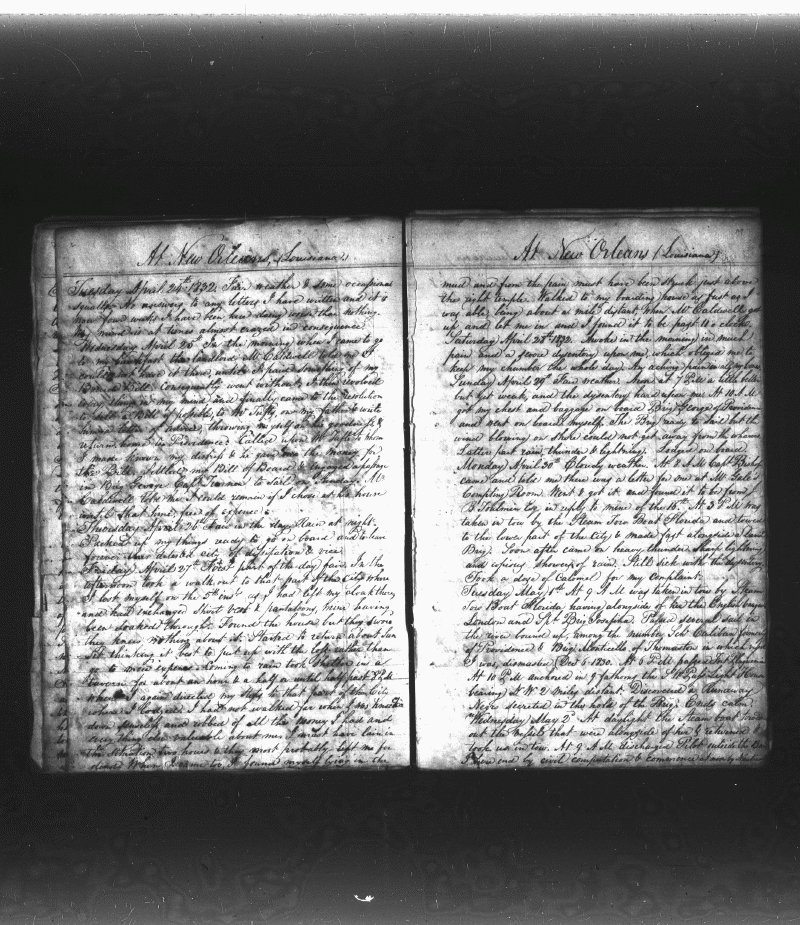 At New Orleans, (Louisiana).
Tuesday April 24th 1832. Fair weather & some occasional
squalls. No answer to any letters I have written and it is
now four weeks I have been here doing worse than nothing
my mind is at times almost crazed in consequence.
Wednesday April 25th In the morning when I came to go
to my breakfast the landlord Mr Caldwell told me I
could not have it there, unless I paid something of my
Board Bill. Consequently went without. I then revolved
every thing in my mind and finally came to the resolution
to a Bill if possible to Mr Tufts, on my father & write
him a letter of advice, throwing myself on his goodness &
return home to Providence. Called upon Mr Tufts to whom
I made known my desires & he gave me the money for
the Bill. Settled my Bill of Board & engaged a passage
in Brig George Capt to sail on Sunday. Mr
Caldwell told me I could remain if I chose at his house
until that time free of expence.
Thursday April 26th Fair in the day, Rain at night.
Packed up my things ready to go on board and to leave
forever this detested city of dissipation & vice.
Friday April 27th First part of the day fair. In the
afternoon took a walk out to that part of the City where
I lost myself on the 5th inst as I had left my cloak there
and had exchanged Short vest & pantaloons, mine having
been soaked through. Found the house but they swore
they knew nothing about it. Started to return about Sun
set thinking it best to put up with the loss rather than
go to more expense. Coming to rain took shelter in a
Tavern for about an hour & a half or until half past 8 P.M.
when I again directed my steps to that part of the City
where I lodged. I had not walked far when I was knocked
down senseless and robbed of all the money I had and
every thing else valuable about me. I must have lain in
this situation two hours & they most probably left me for
dead. When I came to, I found myself lying in the
At New Orleans (Louisiana)
mud and from the pain must have been struck just above
the right temple. Walked to my boarding house as fast as I
was able, being about a mile distant, when Mr Caldwell got
up and let me in and I found it to be past 11 o'clock.
Saturday April 28th 1832. Awoke in the morning in much
pain and a severe dysentery upon me which obliged me to
keep my chamber the whole day. An aching pain in all my bones
Sunday April 29th Fair weather. Arose at 7 P.M a little better
but yet weak, and the dysentery hard upon me. At 10 A.M
got my chest and baggage on board Brig George of Providence
and went on board myself. The Brig ready to sail but the
wind blowing on shore could not get away from the wharves
Latter part rain, thunder & lightning. Lodged on board.
Monday April 30th Cloudy weather. At 8 A.M Capt
came and told me there was a letter for me at Mr Gale's
Compting Room. Went & got it and found it to be from
B. Tohlmin Esq in reply to mine of the 16th. At 3 P.M was
taken in tow by the Steam Tow Boat Florida and towed
to the lower part of the City & made fast alongside a
Brig. Soon after came on heavy thunder, sharp lightning
and copious showers of rain. Still sick with the dysentery
Took a dose of Calomel for my complaint.
Tuesday May 1st At 9 A M was taken in tow by Steam
Tow Boat Florida, having alongside of her the English
London and Brig Josepha. Passed several sail in
the river bound up, among the number Schr Caliban
of Providence & Brig Monticello of Thomaston in which
I was dismasted Dec 6 1830. At 5 P.M passed
At 10 P.M anchored in 9 fathoms the Light House
bearing N.W. 2 miles distant. Discovered a Runaway
Negro secreted in the hold of the Brig. Ends calm.
Wednesday May 2d At daylight the Steam boat towed
out the vessels that were alongside of her & returned &
took us in tow. At 9 A M discharged Pilot outside the Bar
I here end by civil computation & commence